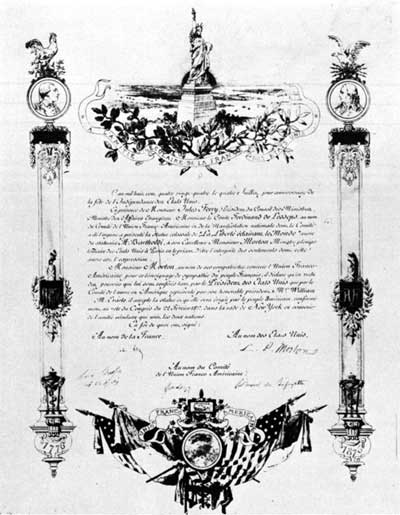 L'an mil huit cent quatre vingt-quatre le quatre Juillet, jour anniversaire de
la fête de l'Indépendance des Etats Unis.
En présence de Monsieur Jules Ferry, Président du Conseil des Ministres,
Ministre des Affaires Etrangères, Monsieur le Comte Ferdinand de Lesseps, au nom
du Comité de l'Union Franco Américaine et de la Manifestation nationale dont le Comité
a été l'organe, a présenté la Statue colossale de "La Liberté éclairant le Monde" œuvre
du statuaire A. Bartholdi, à son Excellence Monsieur Morton, Ministre plénipo-
tentiaire des Etats Unis à Paris, en le priant d'être l'interprète des sentiments dont cette
œuvre est l'expression.
A Monsieur Morton, au nom de ses compatriotes remercie l'Union Franco
Américaine pour ce témoignage de sympathie du peuple Français; il déclare qu'en vertu
des pouvoirs qui lui sont conférés, tant par le Président des Etats Unis que par le
Comité de l'œuvre en Amérique représenté par son honorable président, Mr. William
M. Evarts il accepte la statue et qu'elle sera érigée par le peuple Américain conformé-
ment au vote du Congrès du 22 Février 1877, dans la rade de New York en souvenir
de l'amitié séculaire qui unit les deux nations.
En foi de quoi ont signé:
Au nom de la France.
Au nom des Etats Unis,
L. P. Morton
Au nom du Comité
de l'Union Franco Américaine.
Edmond de Lafayette
FRANCO AMERICAINE
1776